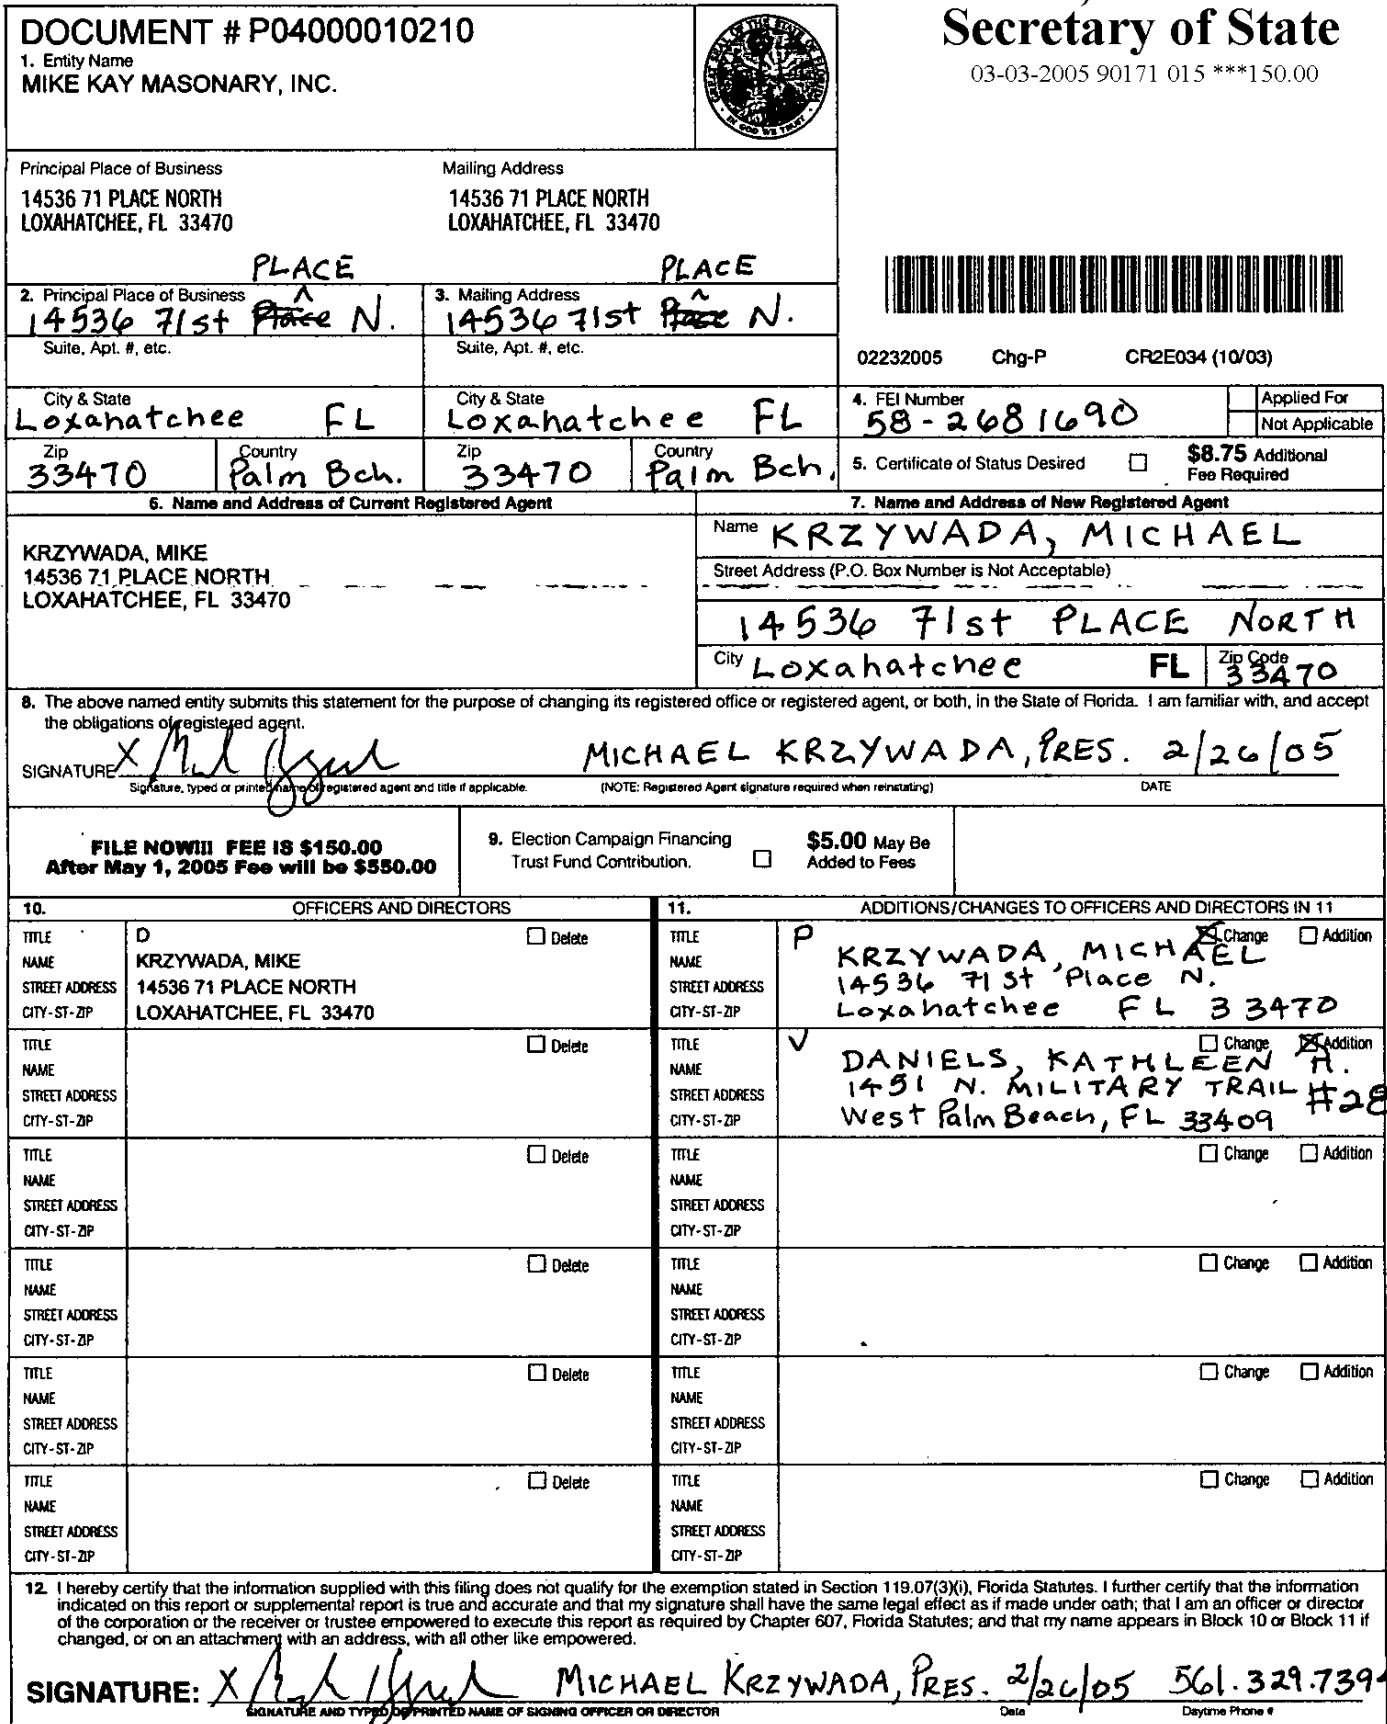 DOCUMENT # P04000010210
1. Entity Name
MIKE KAY MASONARY, INC.
GREAT SEAL OF THE STATE OF FLORIDA
IN GOD WE TRUST
Secretary of State
03-03-2005 90171 015 ***150.00
Principal Place of Business
14536 71 PLACE NORTH
LOXAHATCHEE, FL 33470
Mailing Address
14536 71 PLACE NORTH
LOXAHATCHEE, FL 33470
2. Principal Place of Business
PLACE
14536 71st Place N.
3. Mailing Address
PLACE
14536 71st Place N.
Suite, Apt. #, etc.
Suite, Apt. #, etc.
02232005 Chg-P CR2E034 (10/03)
City & State
Loxahatchee FL
City & State
Loxahatchee FL
4. FEI Number
58-2681690
Applied For
Not Applicable
Zip
33470
Country
Palm Bch.
Zip
33470
Country
Palm Bch.
5. Certificate of Status Desired
$8.75 Additional
Fee Required
6. Name and Address of Current Registered Agent
KRZYWADA, MIKE
14536 71 PLACE NORTH
LOXAHATCHEE, FL 33470
7. Name and Address of New Registered Agent
Name KRZYWADA, MICHAEL
Street Address (P.O. Box Number is Not Acceptable)
14536 71st PLACE NORTH
City Loxahatchee FL Zip Code 33470
8. The above named entity submits this statement for the purpose of changing its registered office or registered agent, or both, in the State of Florida. I am familiar with, and accept
the obligations of registered agent.
SIGNATURE X MICHAEL KRZYWADA, PRES. 2/26/05
Signature, typed or printed name of registered agent and title if applicable. (NOTE: Registered Agent signature required when reinstating) DATE
FILE NOW!!! FEE IS $150.00
After May 1, 2005 Fee will be $550.00
9. Election Campaign Financing
Trust Fund Contribution.
$5.00 May Be
Added to Fees
10. OFFICERS AND DIRECTORS
TITLE D Delete
NAME KRZYWADA, MIKE
STREET ADDRESS 14536 71 PLACE NORTH
CITY-ST-ZIP LOXAHATCHEE, FL 33470
TITLE Delete
NAME
STREET ADDRESS
CITY-ST-ZIP
TITLE Delete
NAME
STREET ADDRESS
CITY-ST-ZIP
TITLE Delete
NAME
STREET ADDRESS
CITY-ST-ZIP
TITLE Delete
NAME
STREET ADDRESS
CITY-ST-ZIP
TITLE Delete
NAME
STREET ADDRESS
CITY-ST-ZIP
11. ADDITIONS/CHANGES TO OFFICERS AND DIRECTORS IN 11
TITLE P Change Addition
NAME KRZYWADA, MICHAEL
STREET ADDRESS 14536 71st Place N.
CITY-ST-ZIP Loxahatchee FL 33470
TITLE V Change Addition
NAME DANIELS, KATHLEEN H.
STREET ADDRESS 1451 N. MILITARY TRAIL #28
CITY-ST-ZIP West Palm Beach, FL 33409
TITLE Change Addition
NAME
STREET ADDRESS
CITY-ST-ZIP
TITLE Change Addition
NAME
STREET ADDRESS
CITY-ST-ZIP
TITLE Change Addition
NAME
STREET ADDRESS
CITY-ST-ZIP
TITLE Change Addition
NAME
STREET ADDRESS
CITY-ST-ZIP
12. I hereby certify that the information supplied with this filing does not qualify for the exemption stated in Section 119.07(3)(i), Florida Statutes. I further certify that the information
indicated on this report or supplemental report is true and accurate and that my signature shall have the same legal effect as if made under oath; that I am an officer or director
of the corporation or the receiver or trustee empowered to execute this report as required by Chapter 607, Florida Statutes; and that my name appears in Block 10 or Block 11 if
changed, or on an attachment with an address, with all other like empowered.
SIGNATURE: X MICHAEL KRZYWADA, PRES. 2/26/05 561.329.7394
SIGNATURE AND TYPED OR PRINTED NAME OF SIGNING OFFICER OR DIRECTOR Date Daytime Phone #